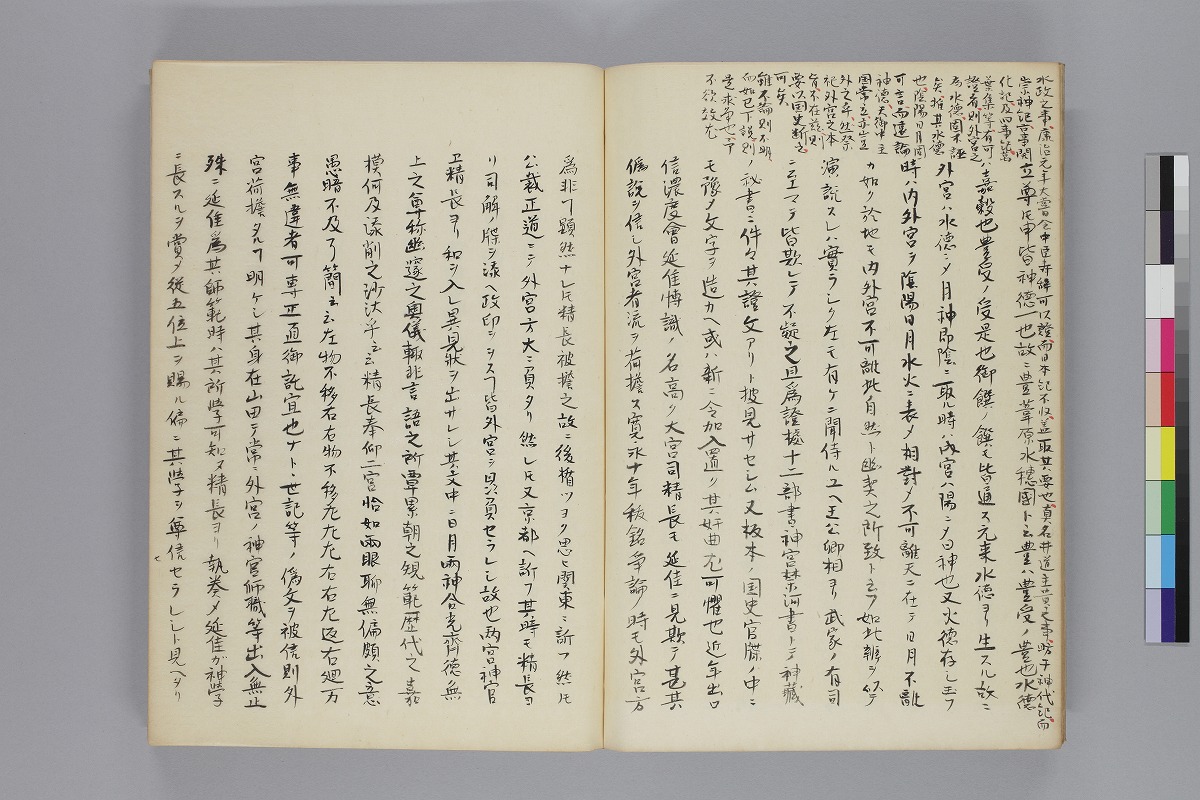 水政之事康治元年大嘗会中臣寿詞可以證而日本紀不収蓋取其要也真名井道主貴之事略于神代紀而
崇神紀言事間
化記及四事
葉集等有可
證者則外宮之
為水徳固不誣
矣指其水徳
也陰陽日月固
可言而遠論
神徳天御中主
国常立亦出
外之弁然祭
祀外宮之本
旨不在茲則
要以国史断之
可矣
雖不論則不明
而如已下説則
是求争也予
不欲效尤
立尊ト申皆神徳一也故ニ豊葦原水穂國ト云豊ハ豊受ノ豊也水徳
ハ嘉穀也豊受ノ受是也御饌ノ饌モ皆通ス元来水徳ヨリ生スル故ニ
外宮ハ水徳ニメ月神即陰ニ取ル時ハ内宮ハ陽ニメ日神也又火徳存シ玉フ
時ハ内外宮ヲ陰陽日月水火ニ表メ相對メ不可離天ニ在テ日月不離
カ如ク於地モ内外宮不可離此自然ト幽契之所致ト云フ如此辨ヲ似テ
演説スレハ實ラシク左モ有ケニ聞侍ルユヘ王公卿相ヨリ武家ノ有司
ニ至マテ皆欺レテ不疑之且為證據十二部書神宮禁河書トテ神藏
ノ祕書ニ件々其證文アリト披見サセシム又板本ノ国史官牒ノ中ニ
モ豫メ文字ヲ造カヘ或ハ新ニ令加入置リ其奸曲尤可懼也近年出口
信濃度會延佳博識ノ名高ク大宮司精長モ延佳ニ見欺テ甚其
偽説ヲ信シ外宮者流ヲ荷擔ス寛永十年秡銘争論ノ時モ外宮方
為非フ顕然ナレ𪜈精長被援之故ニ後楯ツヨク思ヒ関東ニ訴フ然𪜈
公裁正道ニシ外宮方大ニ負タリ然レ𪜈又京都ヘ訴フ其時モ精長ヨ
リ司解ノ牒ヲ添ヘ政印シヌフ皆外宮ヲ贔負セラレシ故也両宮神官
卫精長ヨリ和ヲ入レ異見状ヲ出サレシ其文中ニ日月両神合光齊徳無
上之尊称幽邃之奥儀輙非言語之所覃累朝之規範歴代之嘉
摸何及添削之沙汰乎云云精長奉仰二宮恰如両眼聊無偏頗之意
愚暗不及了簡云云左物不移右右物不移左左左右右左返右廻万
事無違者可専正直御託宣也ナト世記等ノ偽文ヲ被信則外
宮荷擔タルフ明ケシ其身在山田テ常ニ外宮ノ神官師職等出入無止
殊ニ延佳為其師範時ハ其所学可知メ精長ヨリ執奏メ延佳カ神学
ニ長スルヲ賞メ従五位上ヲ賜ル偏ニ其学ヲ尊信セラレシト見ヘタリ